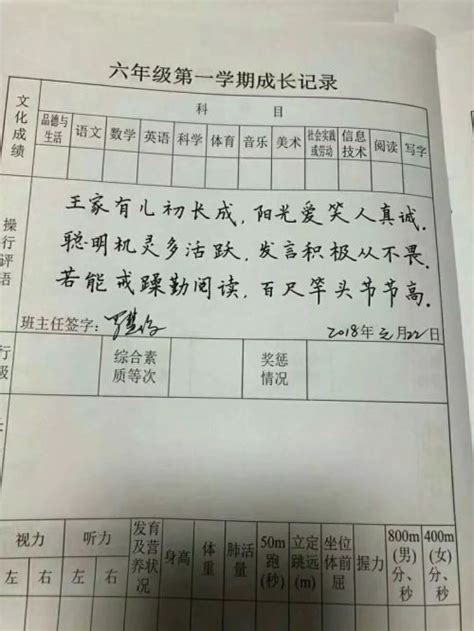 六年级第一学期成长记录
文化成绩
科 目
品德与生活 语文 数学 英语 科学 体育 音乐 美术 社会实践或劳动 信息技术 阅读 写字
操行评语
王家有儿初长成，阳光爱笑人真诚．
聪明机灵多活跃，发言积极从不畏．
若能戒躁勤阅读，百尺竿头节节高．
班主任签字： 2018年元月22日
行
级
综合素质等次 奖惩情况
视力 听力 发育及营养状况 身高 体重 肺活量 50m跑(秒) 立定跳远(m) 坐位体前屈 握力 800m(男)分、秒 400m(女)分、秒
左 右 左 右